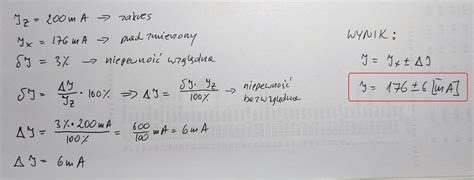 Y_z = 200 mA → zakres
Y_x = 176 mA → prąd zmierzony
δY = 3% → niepewność względna
δY = ΔY / Y_z · 100% ⇒ ΔY = δY · Y_z / 100% → niepewność bezwzględna
ΔY = 3% · 200mA / 100% = 600 / 100 mA = 6mA
ΔY = 6mA
WYNIK:
Y = Y_x ± ΔY
Y = 176 ± 6 [mA]